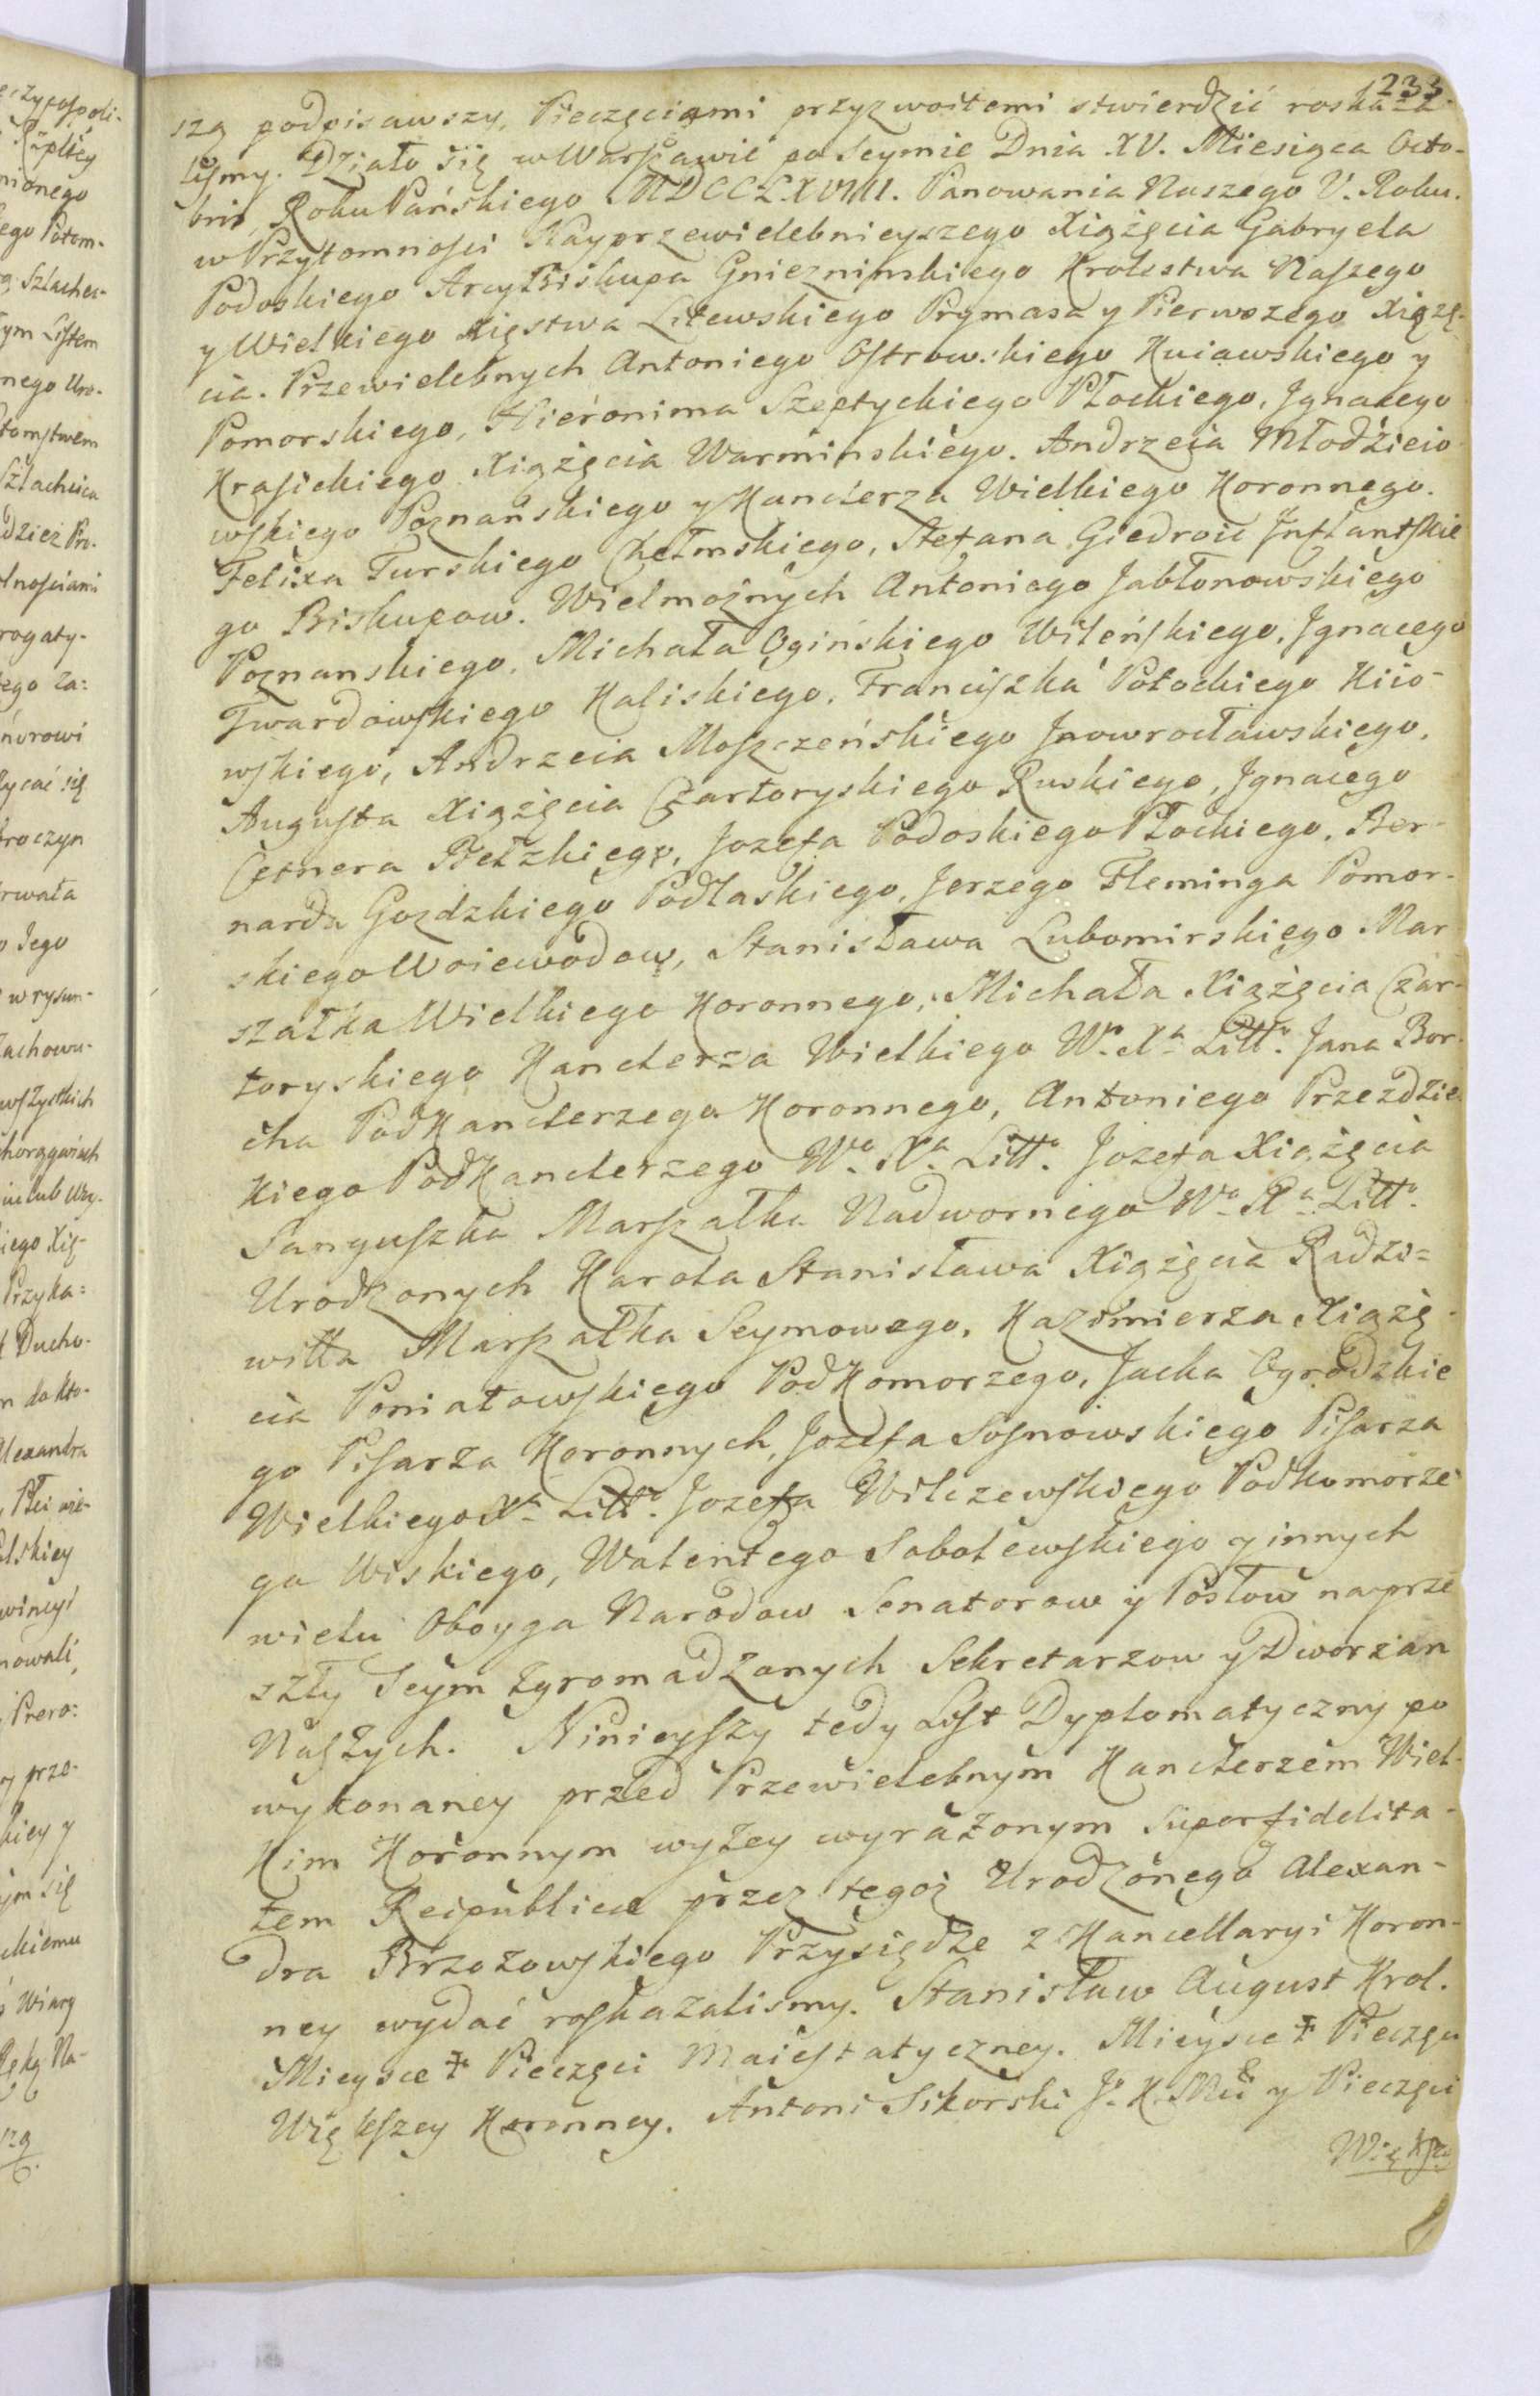 233
szą podpisawszy, Pieczęciami przyzwoitemi stwierdzić roskaza-
liśmy. Działo się w Warszawie po Seymie Dnia XV. Miesiąca Octo-
bris, Roku Pańskiego MDCCLXVIII. Panowania Naszego V. Roku.
w Przytomności Nayprzewielebnieyszego Xiążęcia Gabryela
Podoskiego Arcy Biskupa Gniezninskiego Krolestwa Naszego
y Wielkiego Xięstwa Litewskiego Prymasa y Pierwszego Xiążę-
cia. Przewielebnych Antoniego Ostrowskiego Kuiawskiego y
Pomorskiego, Hieronima Szeptyckiego Płockiego, Jgnacego
Krasickiego Xiążęcia Warminskiego. Andrzeia Młodzieio-
wskiego Poznańskiego y Kanclerza Wielkiego Koronnego.
Felixa Turskiego Chełmskiego, Stefana Giedroić Jnflantskie
go Biskupow. Wielmożnych Antoniego Jabłonowskiego
Poznanskiego, Michała Ogińskiego Wileńskiego, Jgnacego
Twardowskiego Kaliskiego, Franciszka Potockiego Kiio-
wskiego, Andrzeia Moszczeńskiego Jnowrocławskiego,
Augusta Xiążęcia Czartoryskiego Ruskiego, Jgnacego
Cetnera Bełzkiego, Jozefa Podoskiego Płockiego, Ber-
narda Gozdzkiego Podlaskiego, Jerzego Fleminga Pomor-
skiego Woiewodow, Stanisława Lubomirskiego Mar
szałka Wielkiego Koronnego, Michała Xiążęcia Czar-
toryskiego Kanclerza Wielkiego Wo. Xa. Litto. Jana Bor-
cha PodKanclerzego Koronnego, Antoniego Przezdzie
Kiego PodKanclerzego Wo. Xa. Litto. Jozefa Xiążęcia
Sanguszka Marszałka Nadwornego Wo. Xa. Litto.
Urodzonych Karola Stanisława Xiążęcia Radzi=
wiłła Marszałka Seymowego, Kazimierza Xiążę-
cia Poniatowskiego PodKomorzego, Jacka Ogrodzkie
go Pisarza Koronnych, Jozefa Sosnowskiego Pisarza
Wielkiego Xa. Litto. Jozefa Wilczewskiego Podkomorze
go Wiskiego, Walentego Sobolewskiego y innych
wielu Oboyga Narodow Senatorow y Posłow na prze
szły Seym zgromadzonych Sekretarzow y Dworzan
Naszych. Ninieyszy tedy List Dyplomatyczny po
wykonaney przed Przewielebnym Kanclerzem Wiel-
Kim Koronnym wyżey wyrażonym super fidelita-
tem Reipublicæ przez tegoż Urodzonego Alexan-
dra Brzozowskiego Przysiędze z Kancellaryi Koron-
ney wydać roskazalismy. Stanisław August Krol.
Mieysce ‡ Pieczęci Maiestatyczney. Mieysce ‡ Pieczęci
Większey Koronney. Antoni Sikorski Jo. K. Mci y Pieczęci
Większ